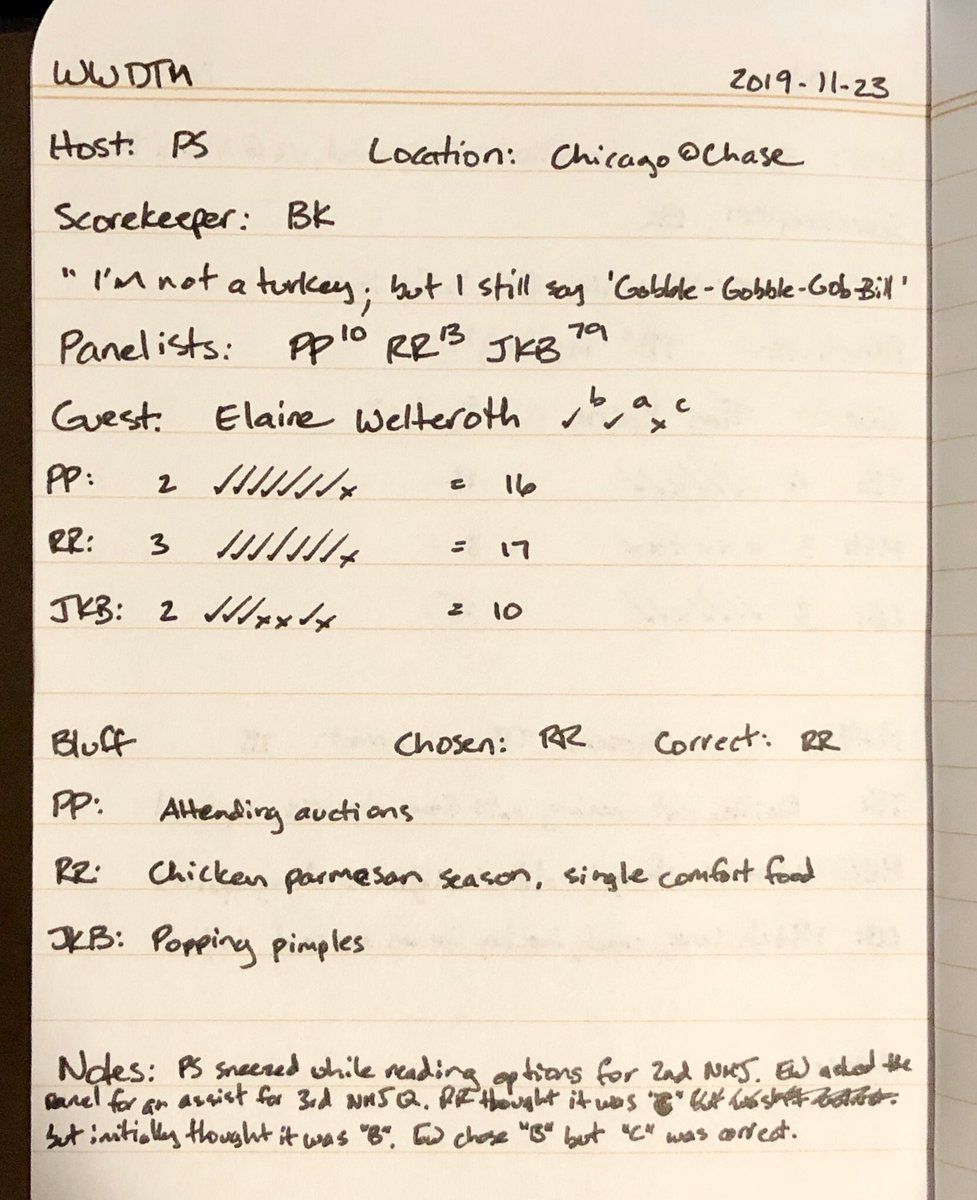 WWDTM 2019-11-23
Host: PS Location: Chicago @ Chase
Scorekeeper: BK
"I'm not a turkey, but I still say 'Gobble-Gobble-Gob-Bill'
Panelists: PP 10 RR 13 JKB 79
Guest: Elaine Welteroth ✓ b ✓ a x c
PP: 2 ✓✓✓✓✓✓✓x = 16
RR: 3 ✓✓✓✓✓✓✓x = 17
JKB: 2 ✓✓✓xx✓x = 10
Bluff Chosen: RR Correct: RR
PP: Attending auctions
RR: Chicken parmesan season, single comfort food
JKB: Popping pimples
Notes: PS sneezed while reading options for 2nd NMJ. EW asked the
panel for an assist for 3rd NMJ Q. RR thought it was
but initially thought it was "B". EW chose "B" but "C" was correct.